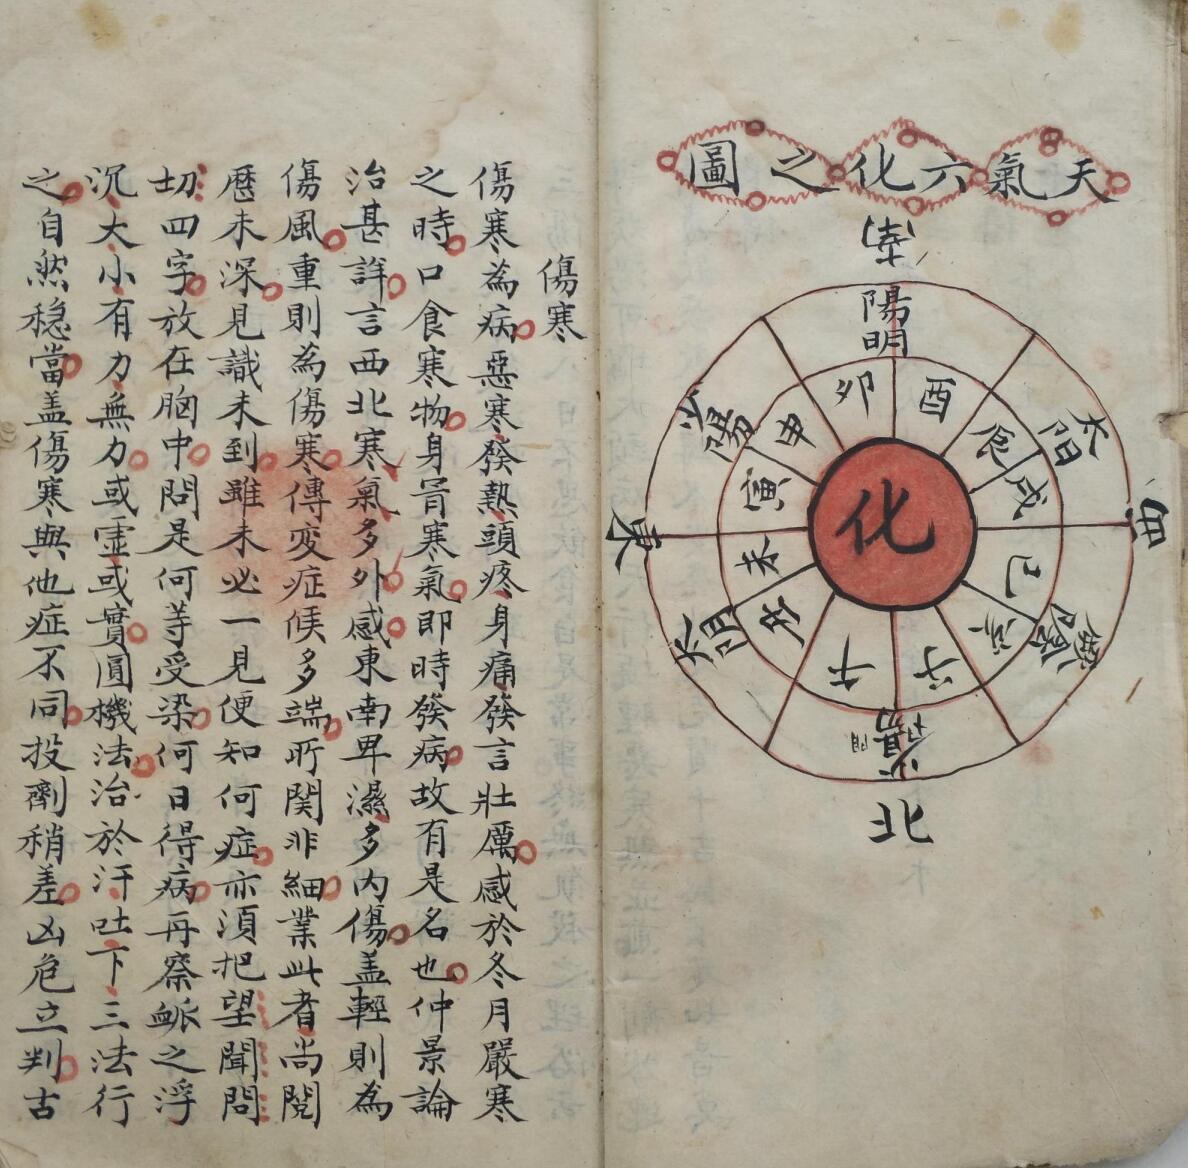 天氣六化之圖
南
陽明
卯
酉
辰
戌
太阳
西
巳
亥
子
午
北
丑
未
太阴
東
寅
申
少陽
化
傷寒
傷寒為病惡寒發熱頭疼身痛發言壯厲感於冬月嚴寒
之時口食寒物身冐寒氣即時發病故有是名也仲景論
治甚詳言西北寒氣多外感東南卑濕多內傷盖輕則為
傷風重則為傷寒傳变症候多端所関非細業此者尚閱
歷未深見識未到雖未必一見便知何症亦須把望聞問
切四字放在胸中問是何等受染何日得病再察脈之浮
沉大小有力無力或虛或實圓機法治於汗吐下三法行
之自然穩當盖傷寒與他症不同投劑稍差凶危立判古